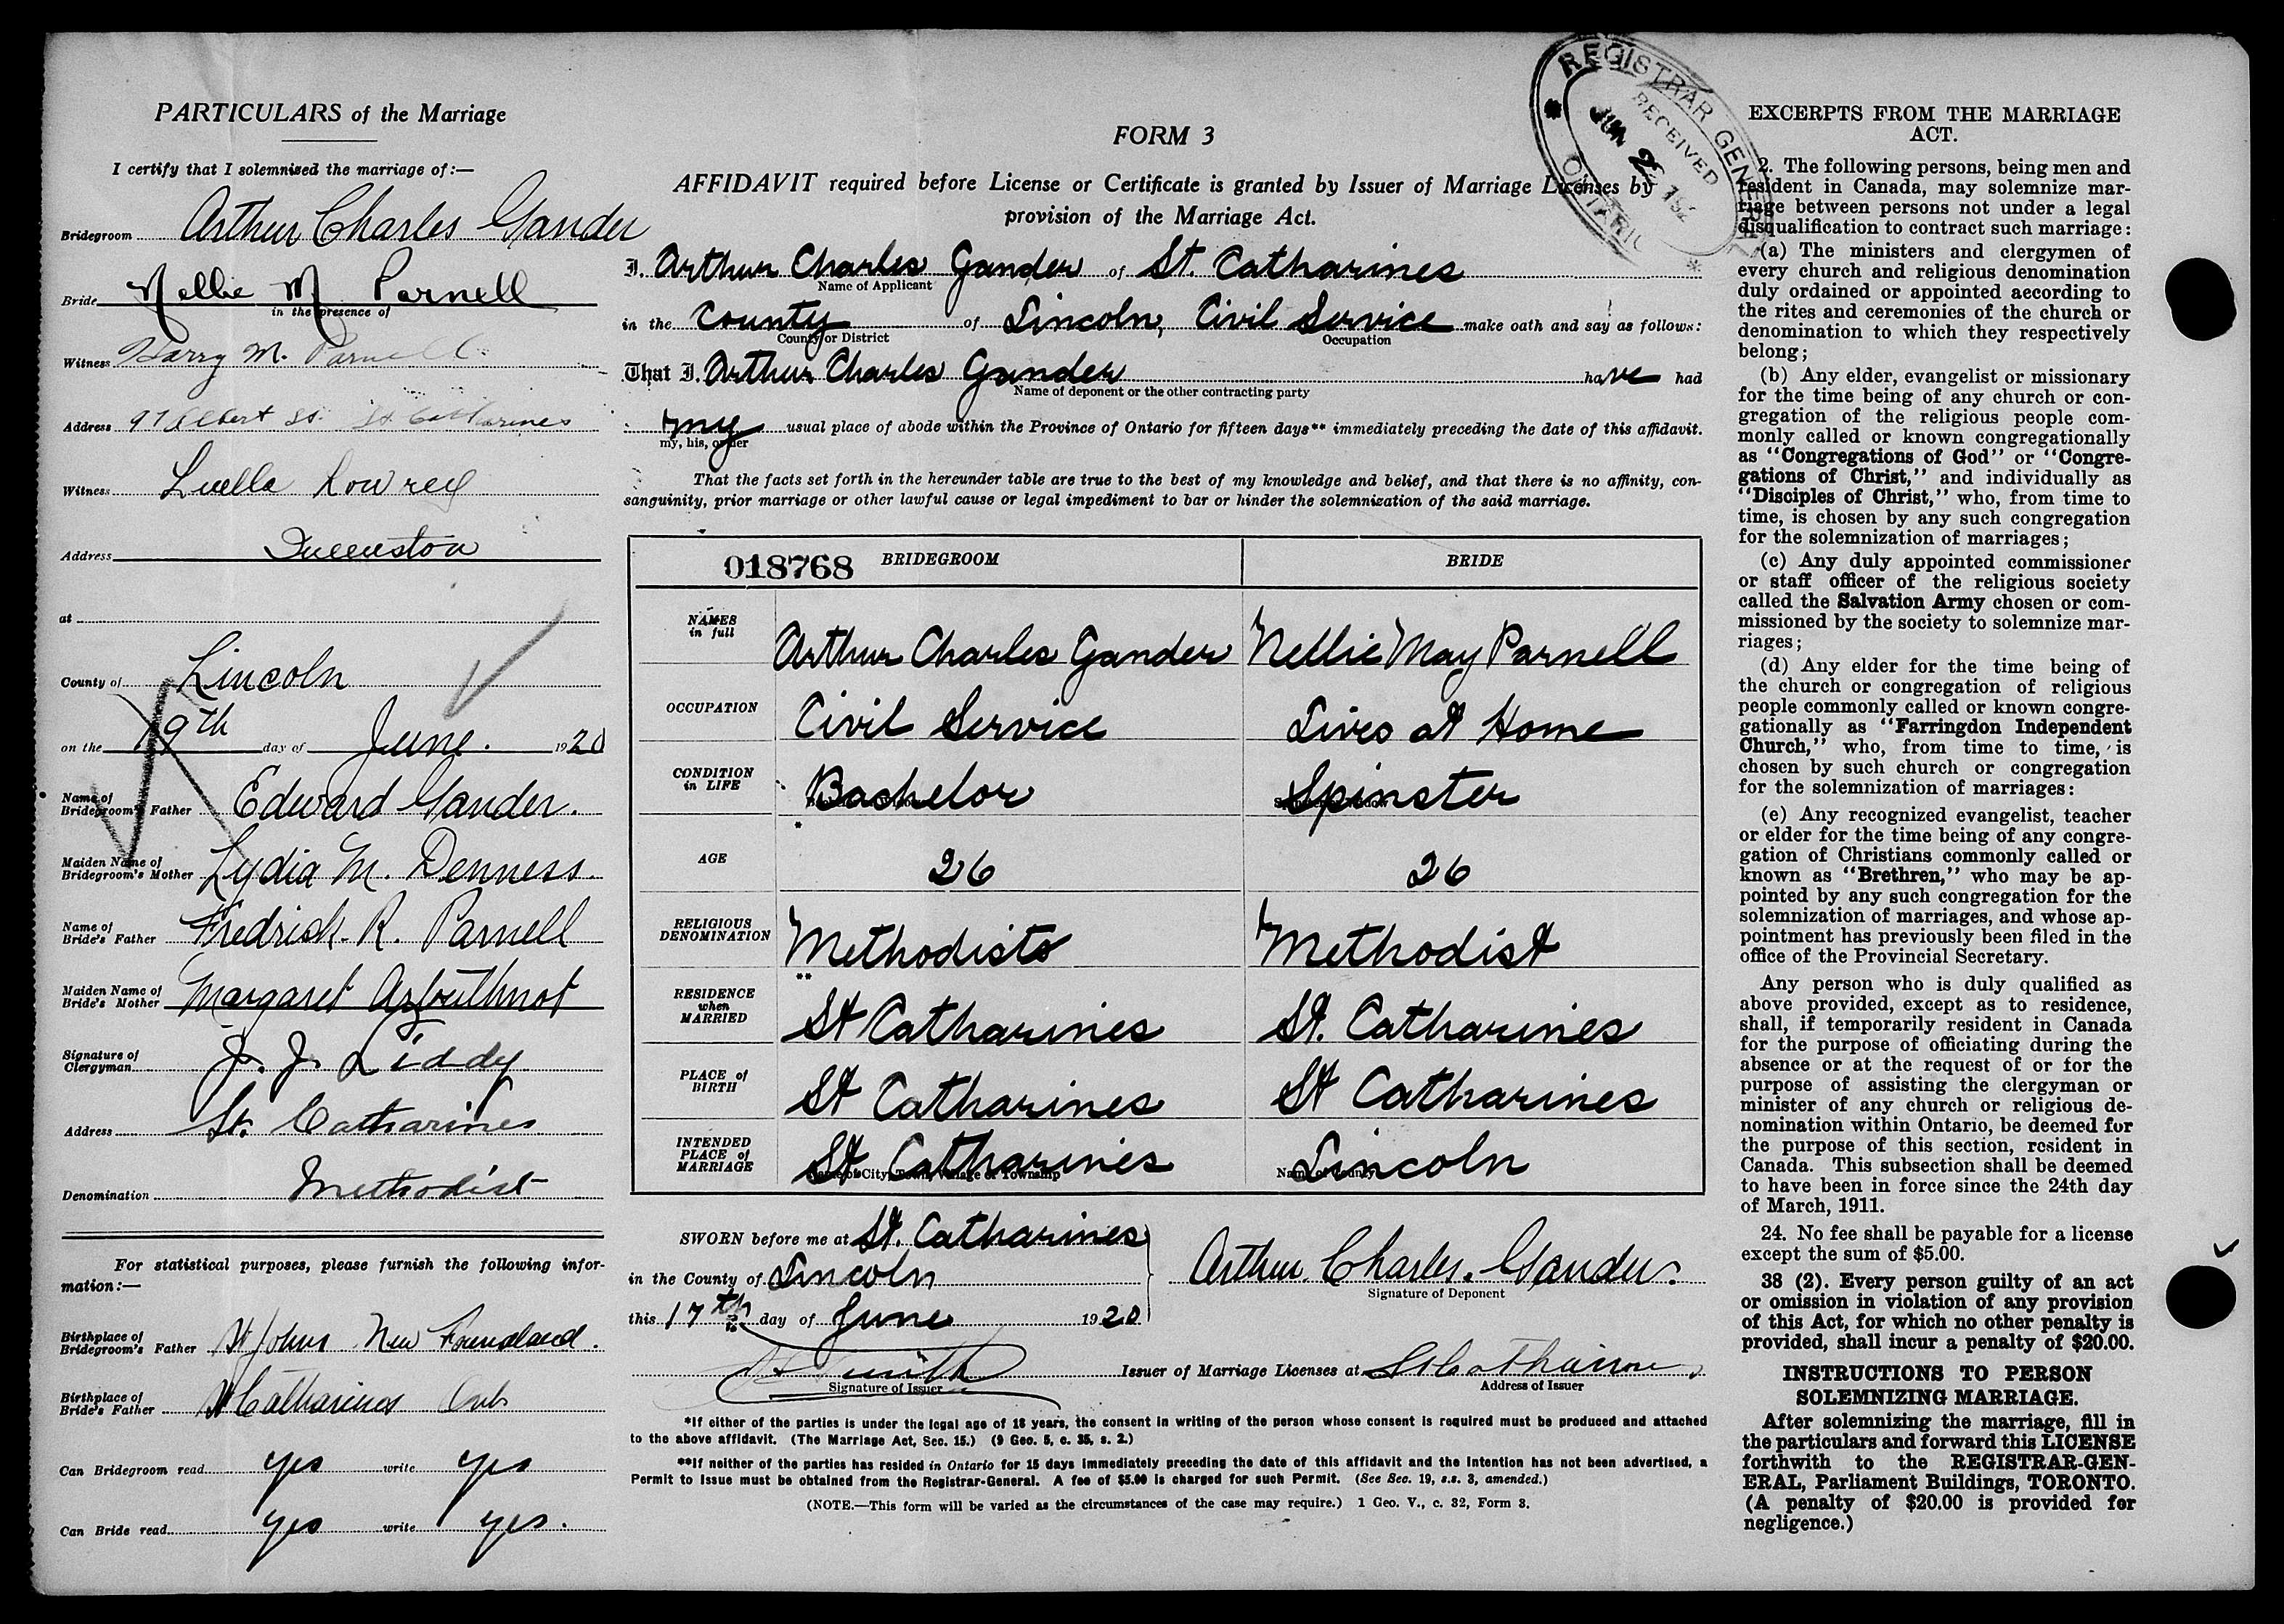 PARTICULARS of the Marriage
I certify that I solemnized the marriage of:—
Bridegroom Arthur Charles Gander
Bride Nellie M Parnell
in the presence of
Witness Harry M. Parnell
Address 97 Albert St. St. Catharines
Witness Luella Lowrey
Address Queenston
at
County of Lincoln
on the 19th day of June. 1920
Name of Bridegroom's Father Edward Gander.
Maiden Name of Bridegroom's Mother Lydia M. Denness.
Name of Bride's Father Fredrick R. Parnell
Maiden Name of Bride's Mother Margaret Arbuthnot
Signature of Clergyman J. J. Liddy
Address St. Catharines
Denomination Methodist
For statistical purposes, please furnish the following infor-
mation:—
Birthplace of Bridegroom's Father St Johns New Foundland.
Birthplace of Bride's Father St Catharines Ont
Can Bridegroom read yes write yes
Can Bride read yes write yes.
FORM 3
AFFIDAVIT required before License or Certificate is granted by Issuer of Marriage Licenses by
provision of the Marriage Act.
I, Arthur Charles Gander of St. Catharines
Name of Applicant
in the County of Lincoln, Civil Service make oath and say as follows:
County or District Occupation
That I, Arthur Charles Gander have had
Name of deponent or the other contracting party
my usual place of abode within the Province of Ontario for fifteen days** immediately preceding the date of this affidavit.
my, his, or her
That the facts set forth in the hereunder table are true to the best of my knowledge and belief, and that there is no affinity, con-
sanguinity, prior marriage or other lawful cause or legal impediment to bar or hinder the solemnization of the said marriage.
018768 BRIDEGROOM BRIDE
NAMES in full Arthur Charles Gander Nellie May Parnell
OCCUPATION Civil Service Lives at Home
CONDITION in LIFE Bachelor Spinster
*
AGE 26 26
RELIGIOUS DENOMINATION Methodists Methodist
**
RESIDENCE when MARRIED St Catharines St. Catharines
PLACE of BIRTH St Catharines St Catharines
INTENDED PLACE of MARRIAGE St Catharines Lincoln
Name of City, Town, Village or Township Name of County
SWORN before me at St. Catharines
in the County of Lincoln
this 17th day of June 1920
Arthur. Charles. Gander.
Signature of Deponent
Smith Issuer of Marriage Licenses at St Catharines
Signature of Issuer Address of Issuer
*If either of the parties is under the legal age of 18 years, the consent in writing of the person whose consent is required must be produced and attached
to the above affidavit. (The Marriage Act, Sec. 15.) (9 Geo. 5, c. 35, s. 2.)
**If neither of the parties has resided in Ontario for 15 days immediately preceding the date of this affidavit and the intention has not been advertised, a
Permit to Issue must be obtained from the Registrar-General. A fee of $5.00 is charged for such Permit. (See Sec. 19, s.s. 3, amended.)
(NOTE.—This form will be varied as the circumstances of the case may require.) 1 Geo. V., c. 32, Form 3.
REGISTRAR GENERAL
RECEIVED
JUN 22 192
ONTARIO
EXCERPTS FROM THE MARRIAGE
ACT.
2. The following persons, being men and
resident in Canada, may solemnize mar-
riage between persons not under a legal
disqualification to contract such marriage:
(a) The ministers and clergymen of
every church and religious denomination
duly ordained or appointed according to
the rites and ceremonies of the church or
denomination to which they respectively
belong;
(b) Any elder, evangelist or missionary
for the time being of any church or con-
gregation of the religious people com-
monly called or known congregationally
as "Congregations of God" or "Congre-
gations of Christ," and individually as
"Disciples of Christ," who, from time to
time, is chosen by any such congregation
for the solemnization of marriages;
(c) Any duly appointed commissioner
or staff officer of the religious society
called the Salvation Army chosen or com-
missioned by the society to solemnize mar-
riages;
(d) Any elder for the time being of
the church or congregation of religious
people commonly called or known congre-
gationally as "Farringdon Independent
Church," who, from time to time, is
chosen by such church or congregation
for the solemnization of marriages:
(e) Any recognized evangelist, teacher
or elder for the time being of any congre-
gation of Christians commonly called or
known as "Brethren," who may be ap-
pointed by any such congregation for the
solemnization of marriages, and whose ap-
pointment has previously been filed in the
office of the Provincial Secretary.
Any person who is duly qualified as
above provided, except as to residence,
shall, if temporarily resident in Canada
for the purpose of officiating during the
absence or at the request of or for the
purpose of assisting the clergyman or
minister of any church or religious de-
nomination within Ontario, be deemed for
the purpose of this section, resident in
Canada. This subsection shall be deemed
to have been in force since the 24th day
of March, 1911.
24. No fee shall be payable for a license
except the sum of $5.00.
38 (2). Every person guilty of an act
or omission in violation of any provision
of this Act, for which no other penalty is
provided, shall incur a penalty of $20.00.
INSTRUCTIONS TO PERSON
SOLEMNIZING MARRIAGE.
After solemnizing the marriage, fill in
the particulars and forward this LICENSE
forthwith to the REGISTRAR-GEN-
ERAL, Parliament Buildings, TORONTO.
(A penalty of $20.00 is provided for
negligence.)